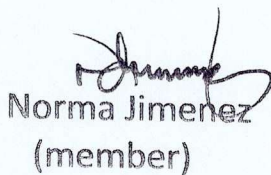 Norma Jimenez
(member)